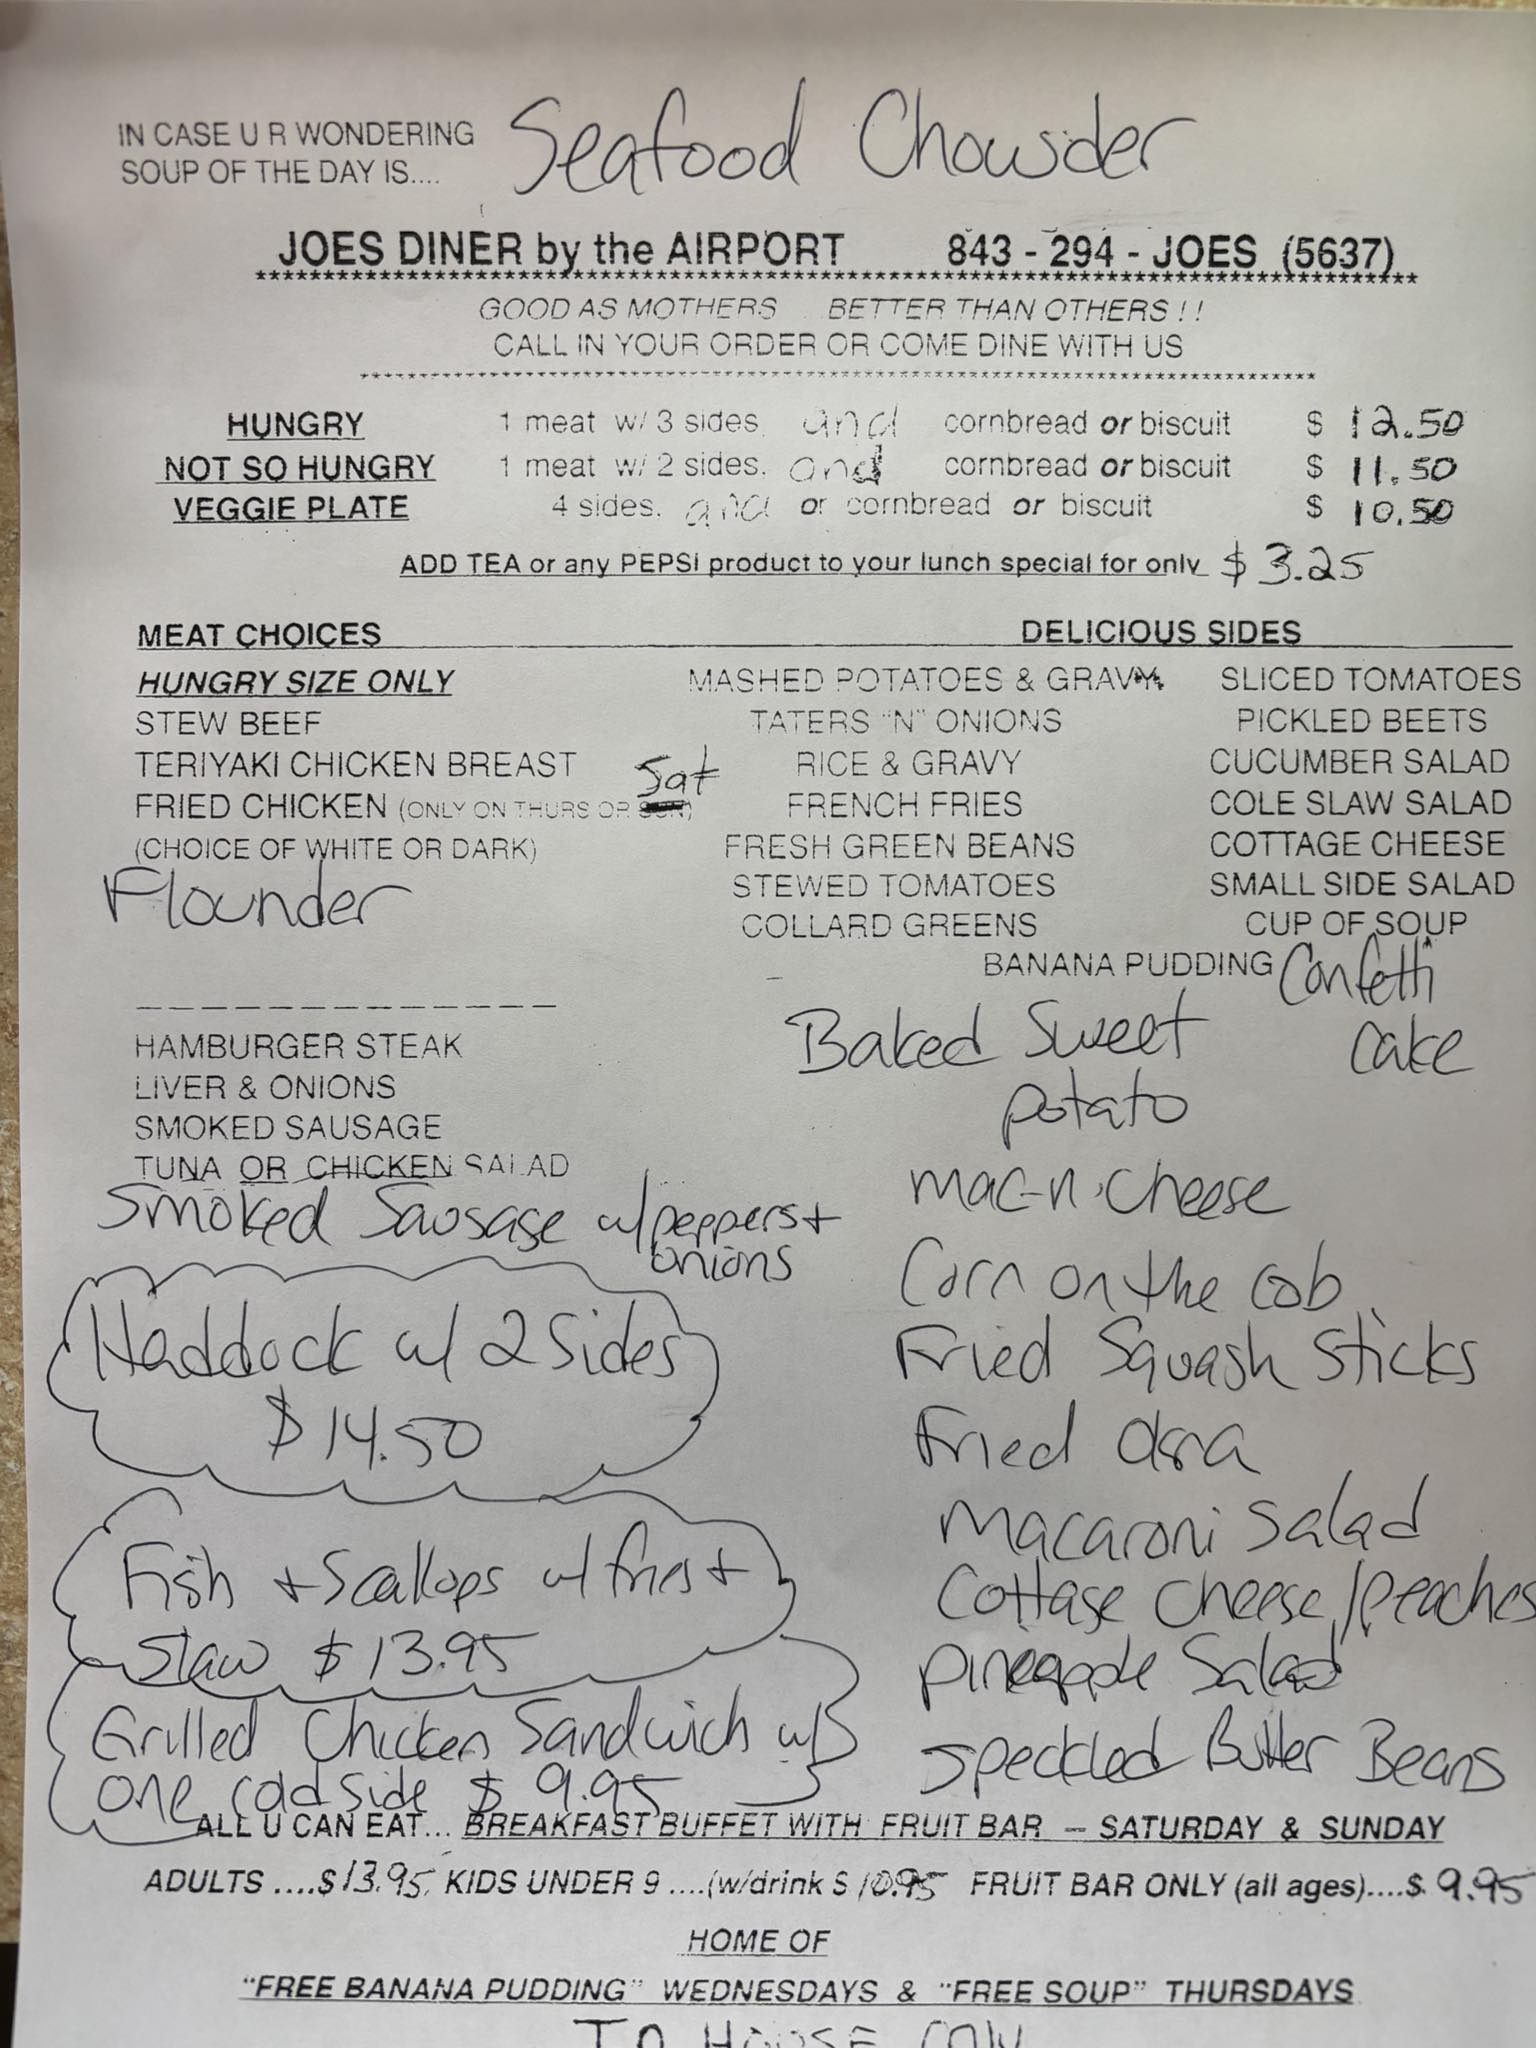 IN CASE U R WONDERING
SOUP OF THE DAY IS.... Seafood Chowder
JOES DINER by the AIRPORT 843 - 294 - JOES (5637)
*****************************************************************
GOOD AS MOTHERS BETTER THAN OTHERS ! !
CALL IN YOUR ORDER OR COME DINE WITH US
*****************************************************************
HUNGRY 1 meat w/ 3 sides and cornbread or biscuit $ 12.50
NOT SO HUNGRY 1 meat w/ 2 sides. and cornbread or biscuit $ 11.50
VEGGIE PLATE 4 sides. and or cornbread or biscuit $ 10.50
ADD TEA or any PEPSI product to your lunch special for only $ 3.25
MEAT CHOICES
HUNGRY SIZE ONLY
STEW BEEF
TERIYAKI CHICKEN BREAST
FRIED CHICKEN (ONLY ON THURS OR SUN) Sat
(CHOICE OF WHITE OR DARK)
Flounder
- - - - - - - - - - - - -
HAMBURGER STEAK
LIVER & ONIONS
SMOKED SAUSAGE
TUNA OR CHICKEN SALAD
Smoked Sausage w/peppers +
onions
Haddock w/ 2 Sides
$ 14.50
Fish + Scallops w/ fries +
Slaw $ 13.95
Grilled Chicken Sandwich w/
one cold side $ 9.95
DELICIOUS SIDES
MASHED POTATOES & GRAVY
TATERS "N" ONIONS
RICE & GRAVY
FRENCH FRIES
FRESH GREEN BEANS
STEWED TOMATOES
COLLARD GREENS
SLICED TOMATOES
PICKLED BEETS
CUCUMBER SALAD
COLE SLAW SALAD
COTTAGE CHEESE
SMALL SIDE SALAD
CUP OF SOUP
BANANA PUDDING Confetti
Cake
Baked Sweet
potato
mac-n-cheese
Corn on the cob
Fried Squash Sticks
Fried okra
Macaroni Salad
Cottage Cheese/peaches
pineapple Salad
Speckled Butter Beans
ALL U CAN EAT... BREAKFAST BUFFET WITH FRUIT BAR – SATURDAY & SUNDAY
ADULTS ....$ 13.95 KIDS UNDER 9 ....(w/drink $ 10.95 FRUIT BAR ONLY (all ages)....$ 9.95
HOME OF
"FREE BANANA PUDDING" WEDNESDAYS & "FREE SOUP" THURSDAYS